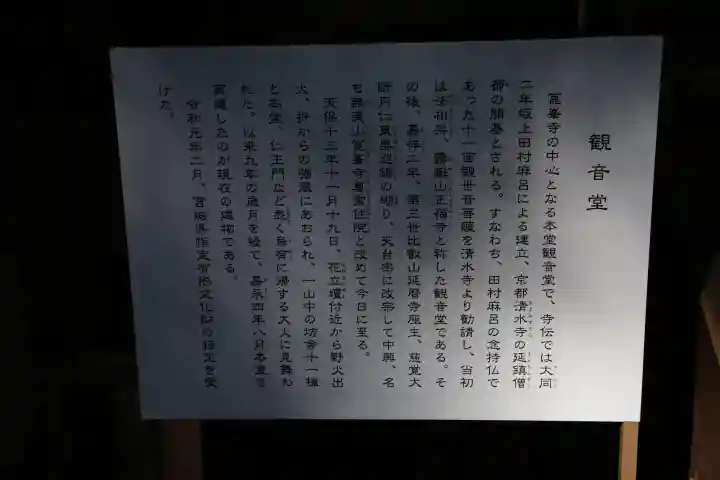 観音堂
箆峯寺の中心となる本堂観音堂で、寺伝では大同
二年坂上田村麻呂による建立、京都清水寺の延鎮僧
都の開基とされる。すなわち、田村麻呂の念持仏で
あった十一面観世音菩薩を清水寺より勧請し、当初
は、霧嶽山正福寺と称した観音堂である。そ
の後、嘉祥二年、第三世比叡山延暦寺座主、慈覚大
師円仁東奥巡錫の砌り、天台宗に改宗して中興、名
も無夷山箆峯寺と改めて今日に至る。
天保十三年十一月十九日、花立壇付近から野火出
火、折からの強風にあおられ、一山中の坊舎十一棟
と本堂、仁王門など悉く烏有に帰する大火に見舞わ
れた。以来九年の歳月を経て、嘉永四年八月本堂を
再建したのが現在の建物である。
令和元年二月、宮城県指定有形文化財の指定を受
けた。